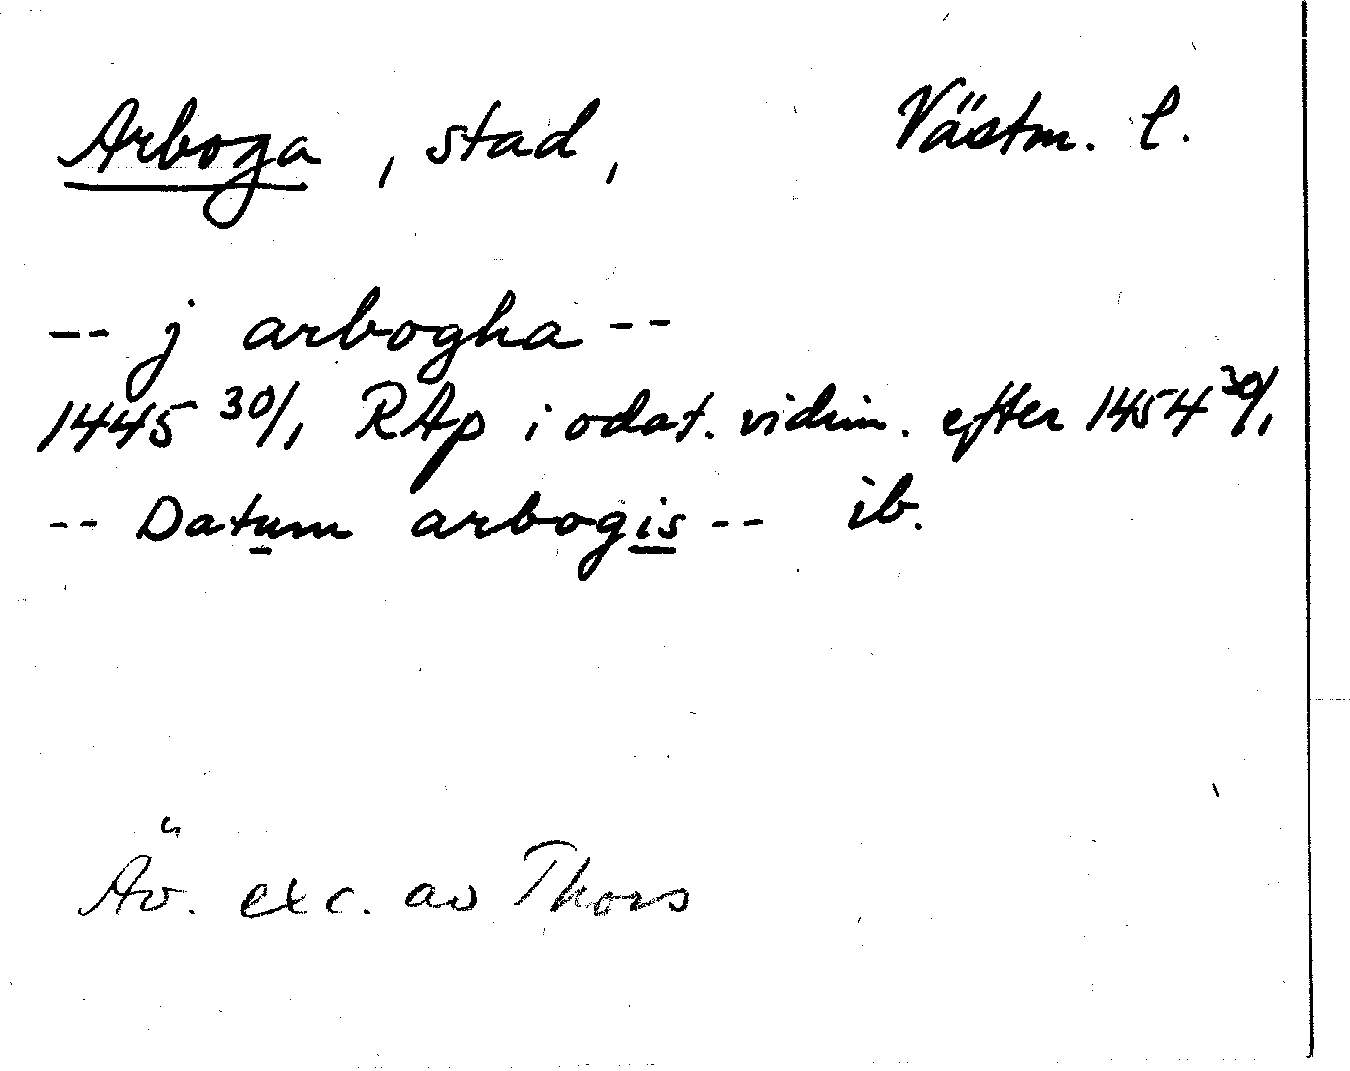 Arboga, stad, Västm. l.
-- j arbogha --
1445 30/1 RAp i odat. vidim. efter 1454 30/1
-- Datum arbogis -- ib.
Äv. exc. av Thors